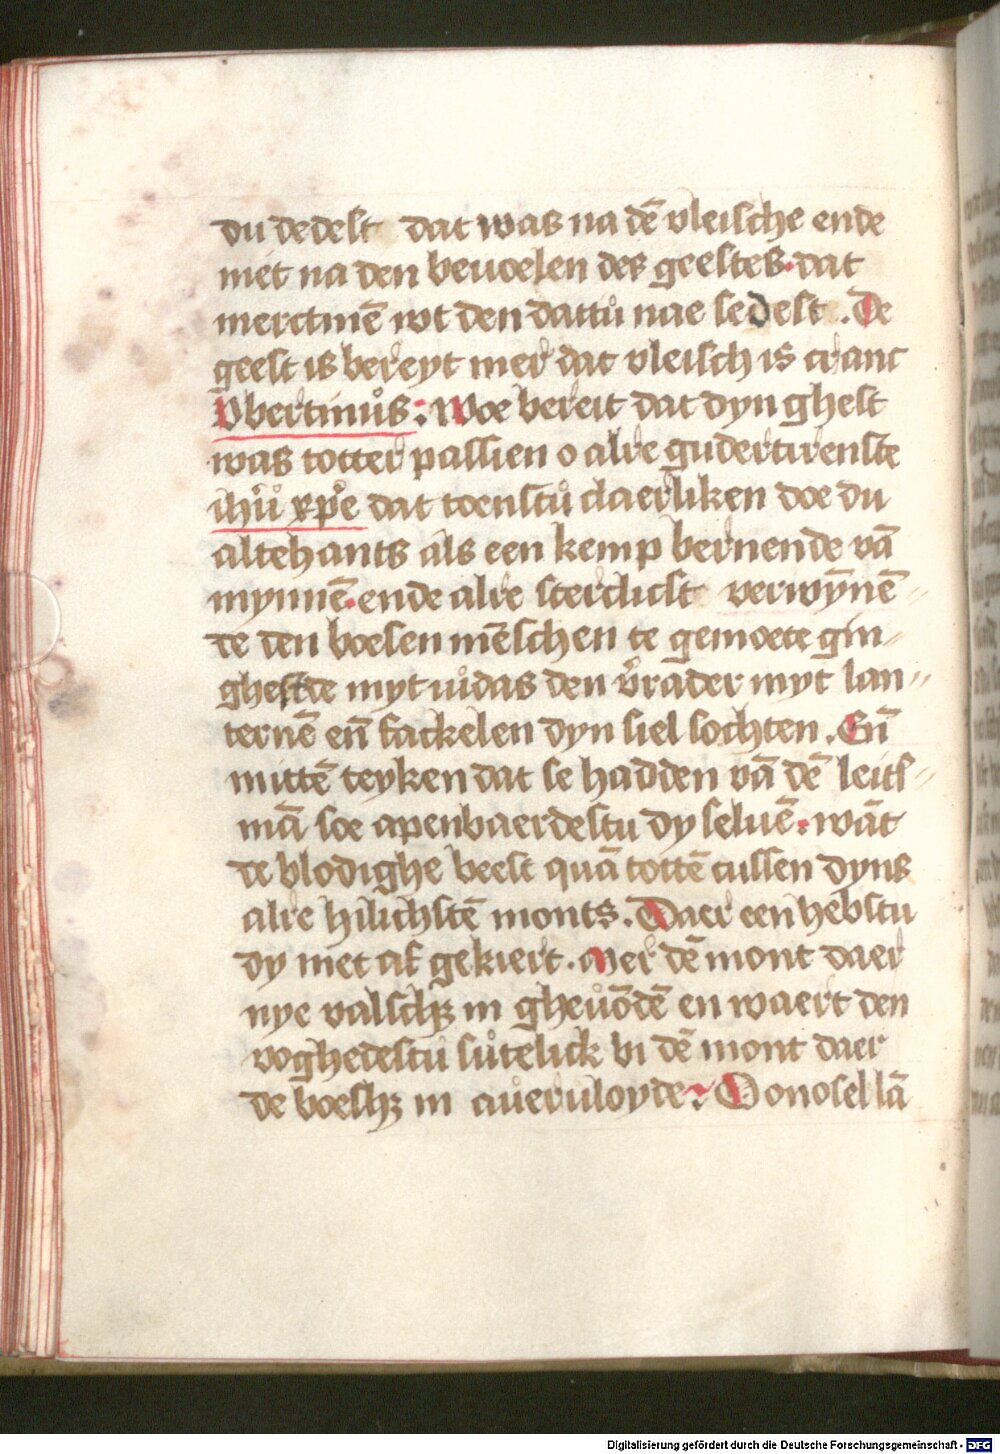 du dedest dat was na dē vleische ende
niet na den bevoelen des geestes. dat
mercmē wt den dattu nae sedest. De
geest is bereyt mer dat vleisch is cranc
Vbertinus: Woe bereit dat dyn ghest
was totter passien o alre gudertirenste
ihū xpē dat toenstu claerliken doe du
altehants als een kemp bernende vā
mynnē. ende alre sterclicst verwȳnē-
de den boesen mēschen te gemoete gin-
ghestde myt iudas den vrader myt lan-
ternē eñ fackelen dyn siel sochten. Eñ
mittē teyken dat se hadden vā dē leits-
mā soe apenbaerdestu dy seluē. wāt
de blodighe beest quā tottē cussen dyns
alre hilichstē monts. Daer een hebstu
dy niet af gekiert. Mer dē mont daer
nye valschꝫ in gheuōdē en waert den
voghedestu sutelick bi dē mont daer
de boeshꝫ in aueruloyde. O onosel lā
Digitalisierung gefördert durch die Deutsche Forschungsgemeinschaft - DFG